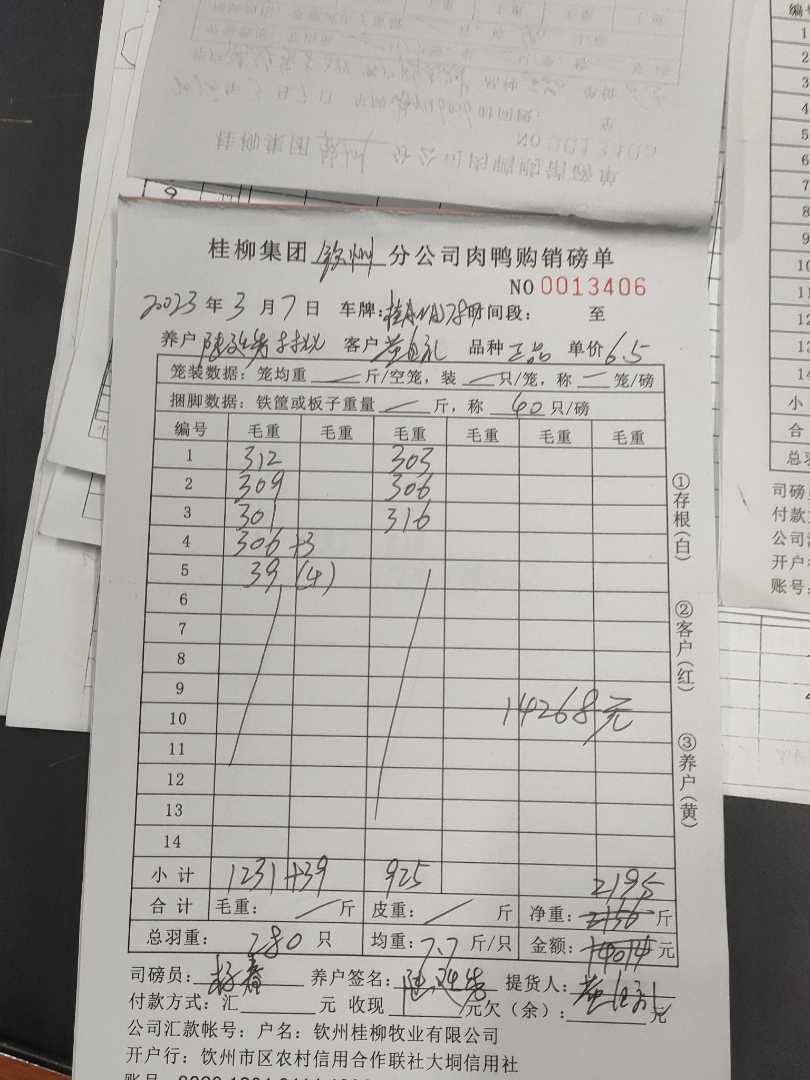 桂柳集团 钦州 分公司肉鸭购销磅单
NO 0013406
2023 年 3 月 7 日 车牌: 时间段: 至
养户 客户 品种 正品 单价 6.5
笼装数据: 笼均重 — 斤/空笼, 装 — 只/笼, 称 — 笼/磅
捆脚数据: 铁筐或板子重量 — 斤, 称 60 只/磅
编号 毛重 毛重 毛重 毛重 毛重 毛重
1 312 303
2 309 306
3 301 316
4 306+3
5 39 (4)
6
7
8
9
10 14268元
11
12
13
14
小计 1231+39 925 2195
合计 毛重: / 斤 皮重: / 斤 净重: 2156 斤
总羽重: 280 只 均重: 7.7 斤/只 金额: 14014 元
司磅员: 养户签名: 提货人:
付款方式: 汇 元 收现 元欠(余): 元
公司汇款帐号: 户名: 钦州桂柳牧业有限公司
开户行: 钦州市区农村信用合作联社大垌信用社
①存根(白)
②客户(红)
③养户(黄)
编号
1
2
3
4
5
6
7
8
9
10
11
12
13
14
小
合
总羽
司磅员
付款方
公司汇
开户行
账号: